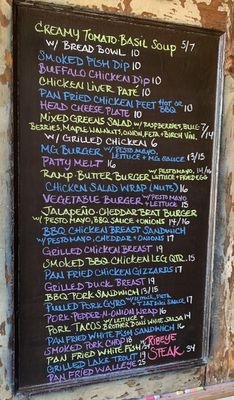 Creamy Tomato Basil Soup 5/7
w/ Bread Bowl 10
Smoked Fish Dip 10
Buffalo Chicken Dip 10
Chicken Liver Paté 10
Pan Fried Chicken Feet Hot or BBQ 10
Head Cheese Plate 10
Mixed Greens Salad w/ Raspberries, Blue-
Berries, Maple Walnuts, Onion, Feta + Birch Vin. 7/14
w/ Grilled Chicken 6
MG Burger w/ Pesto Mayo, Lettuce + MG Sauce 13/15
Patty Melt 16
Ramp Butter Burger w/ Pesto Mayo, Lettuce + Fried Egg 14/16
Chicken Salad Wrap (Nuts) 16
Vegetable Burger w/ Pesto Mayo + Lettuce 15
Jalapeño-Cheddar Brat Burger
w/ Pesto Mayo, BBQ Sauce + Onions 14/16
BBQ Chicken Breast Sandwich
w/ Pesto Mayo, Cheddar + Onions 17
Grilled Chicken Breast 19
Smoked BBQ Chicken Leg Qtr. 15
Pan Fried Chicken Gizzards 17
Grilled Duck Breast 19
BBQ Pork Sandwich 13/15
Pulled Pork Gyro w/ Lettuce, Feta + Tzatziki Sauce 17
Pork-Pepper-n-Onion Wrap 16
Pork Tacos w/ Lettuce + Salsa 14
Pan Fried White Fish Sandwich 16
Smoked Pork Chop 18
Pan Fried White Fish 24
Grilled Lake Trout 19
Pan Fried Walleye 25
Ribeye
Steak 34